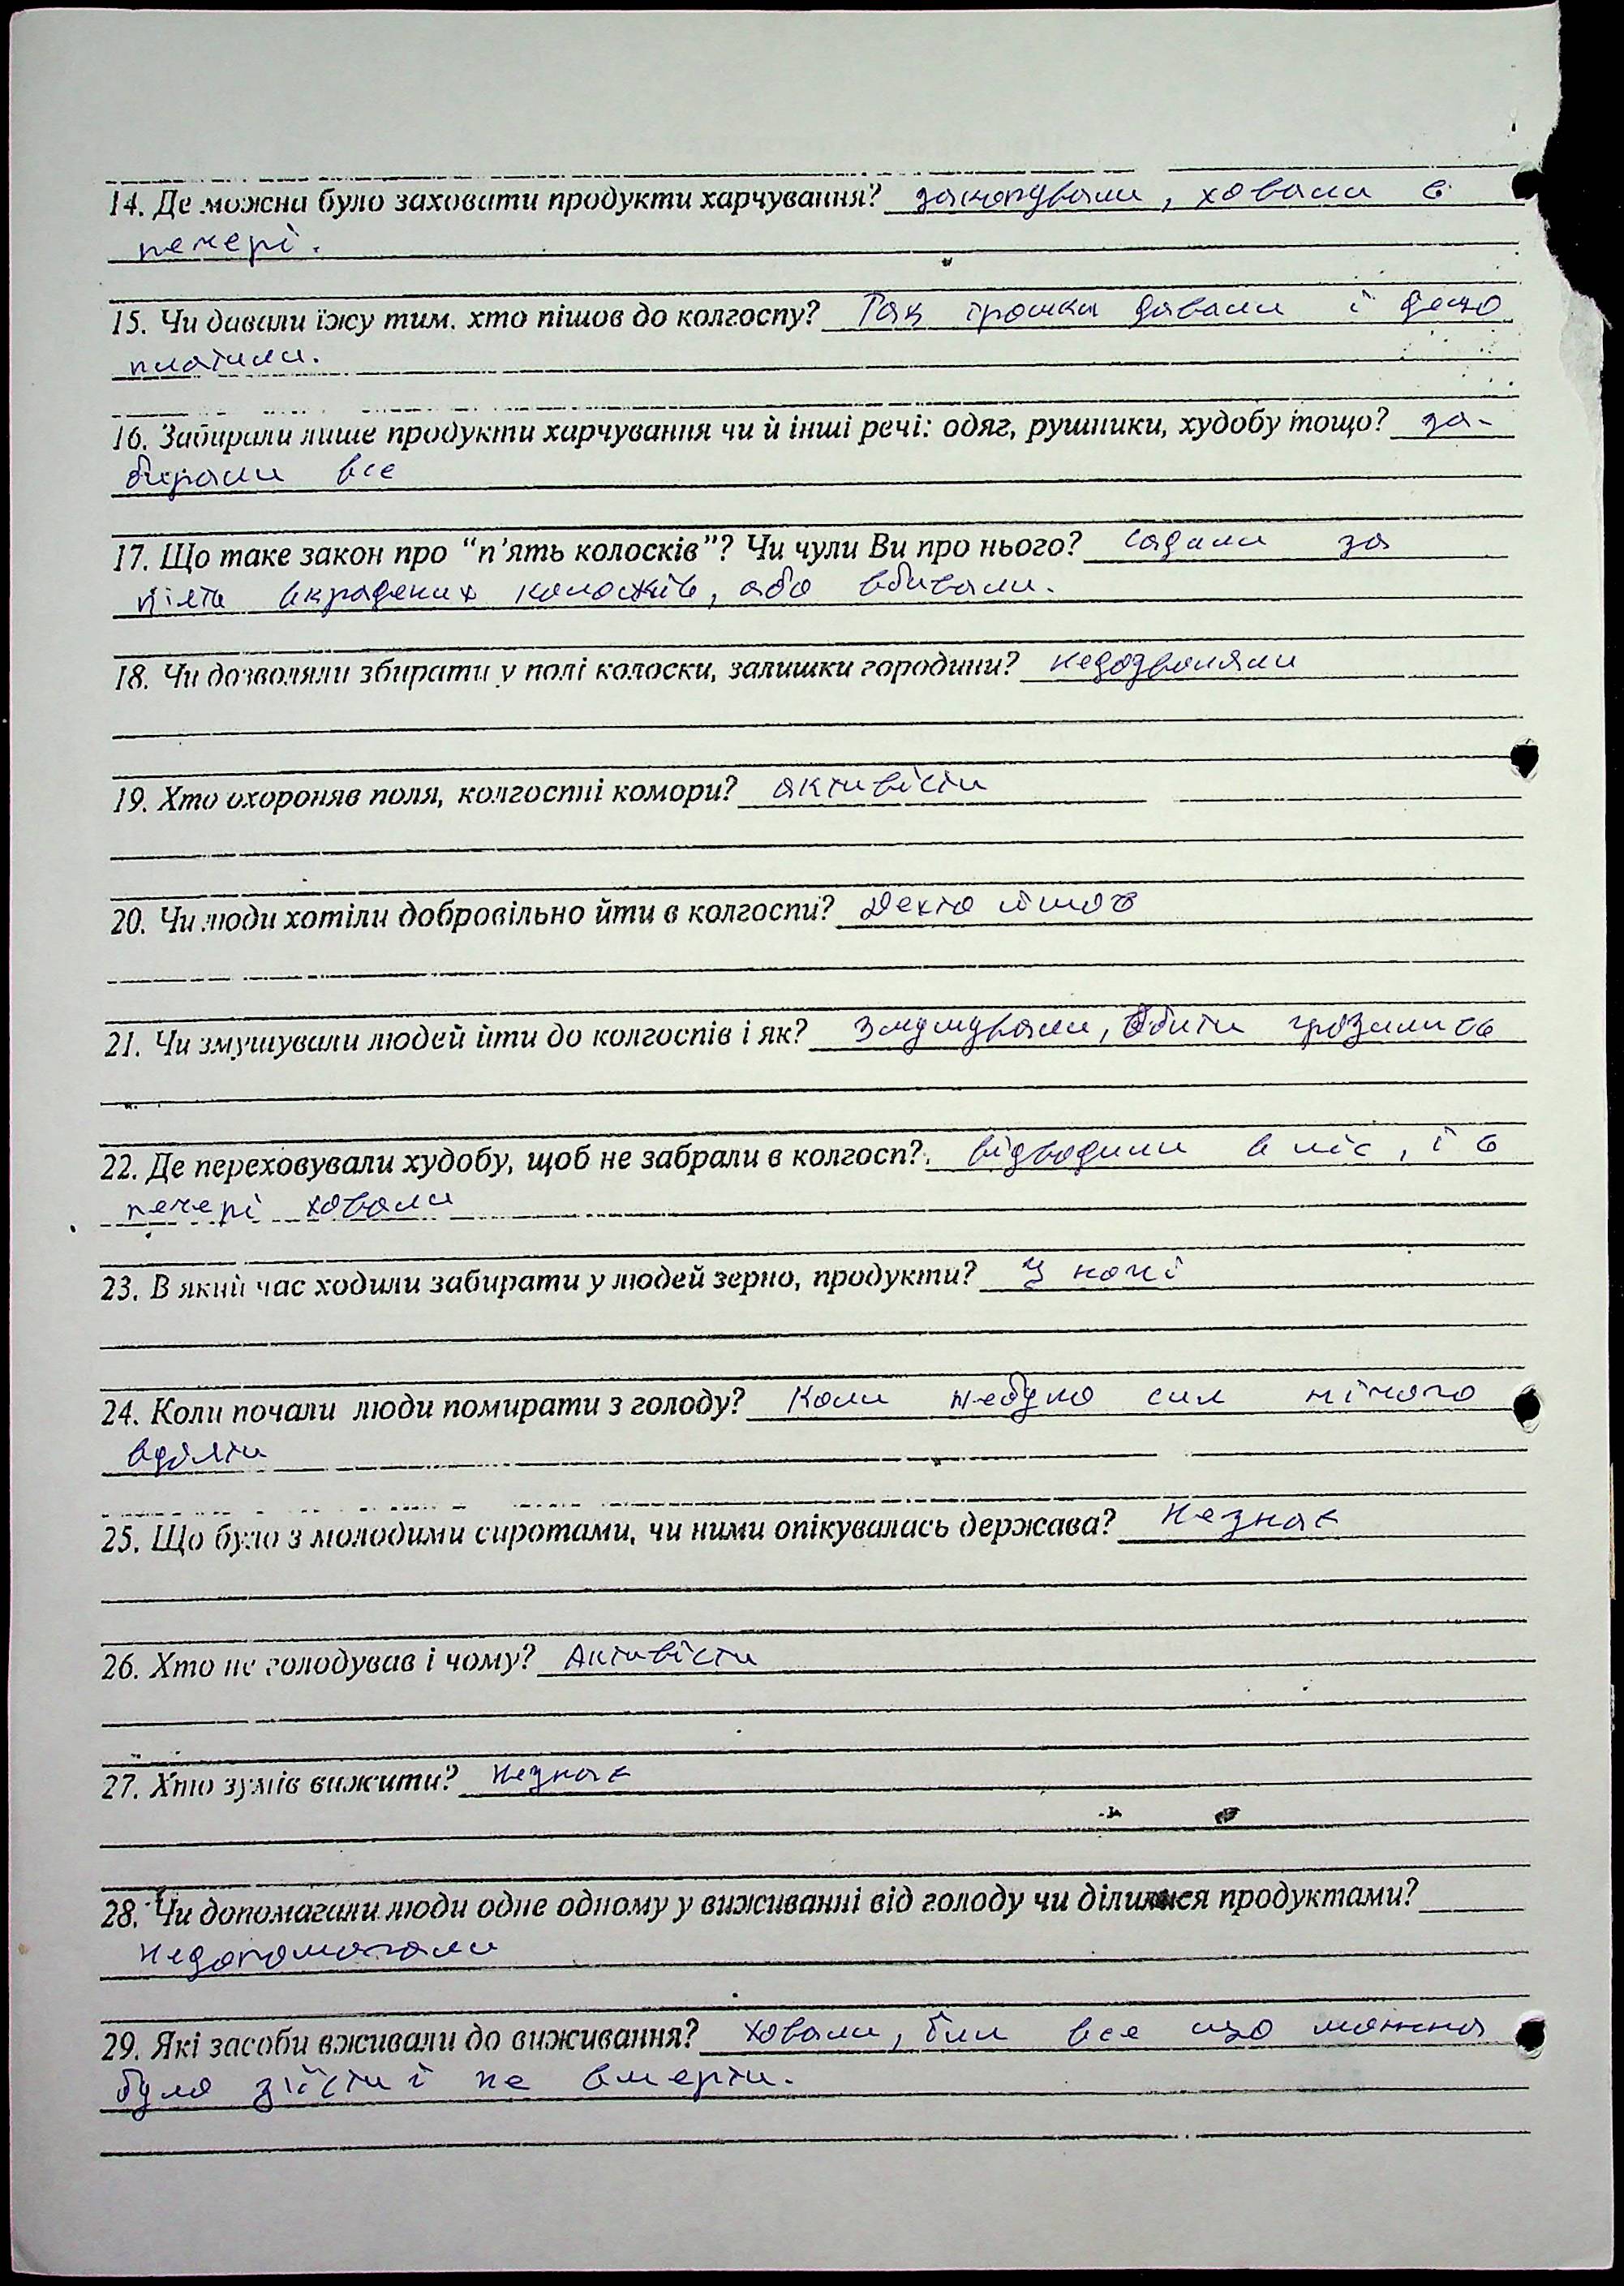 14. Де можна було заховати продукти харчування? закопували, ховали в
печері.
15. Чи давали їжу тим, хто пішов до колгоспу? Так трошки давали і дещо
платили.
16. Забирали лише продукти харчування чи й інші речі: одяг, рушники, худобу тощо? за-
бирали все
17. Що таке закон про “п’ять колосків”? Чи чули Ви про нього? садили за
пʼять вкрадених колосків, або вбивали.
18. Чи дозволяли збирати у полі колоски, залишки городини? недозволяли
19. Хто охороняв поля, колгоспні комори? активісти
20. Чи люди хотіли добровільно йти в колгоспи? Декто йшов
21. Чи змушували людей йти до колгоспів і як? Змушували, вбити грозились
22. Де переховували худобу, щоб не забрали в колгосп? відводили в ліс, і в
печері ховали
23. В який час ходили забирати у людей зерно, продукти? У ночі
24. Коли почали люди помирати з голоду? Коли небуло сил нічого
25. Що було з молодими сиротами, чи ними опікувалась держава? Незнає
26. Хто не голодував і чому? Активісти
27. Хто зумів вижити? Незнає
28. Чи допомагали люди одне одному у виживанні від голоду чи ділилися продуктами?
недопомагали
29. Які засоби вживали до виживання? ховали, їли все що можна
було зʼїсти і не вмерти.